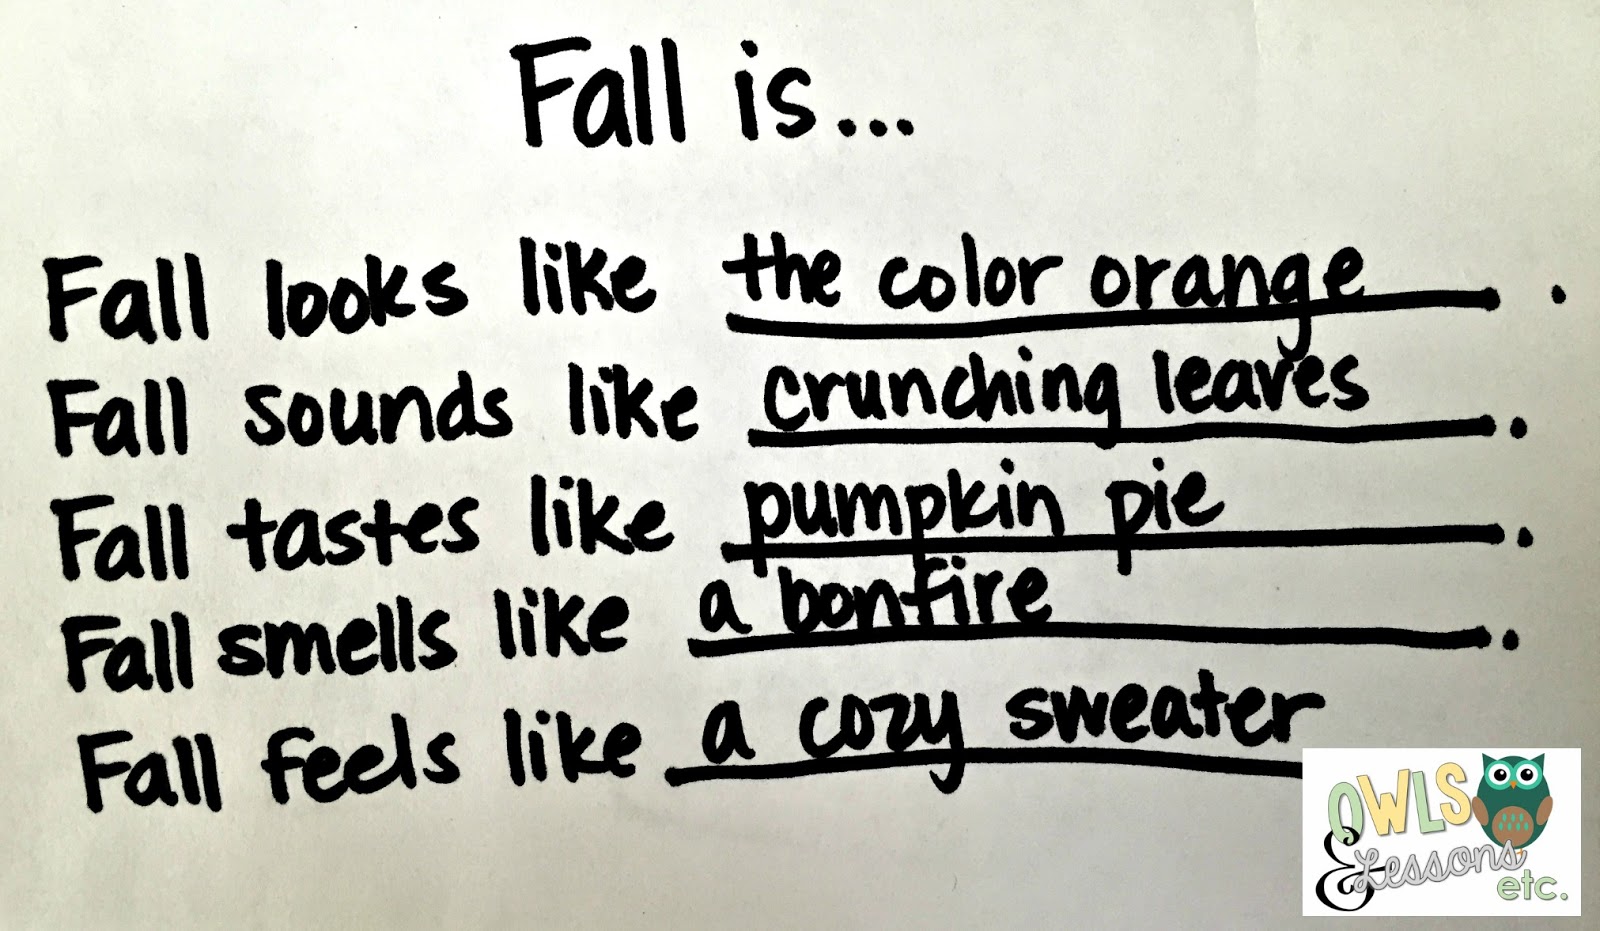 Fall is...
Fall looks like the color orange.
Fall sounds like crunching leaves.
Fall tastes like pumpkin pie.
Fall smells like a bonfire.
Fall feels like a cozy sweater
OWLS
& Lessons
etc.